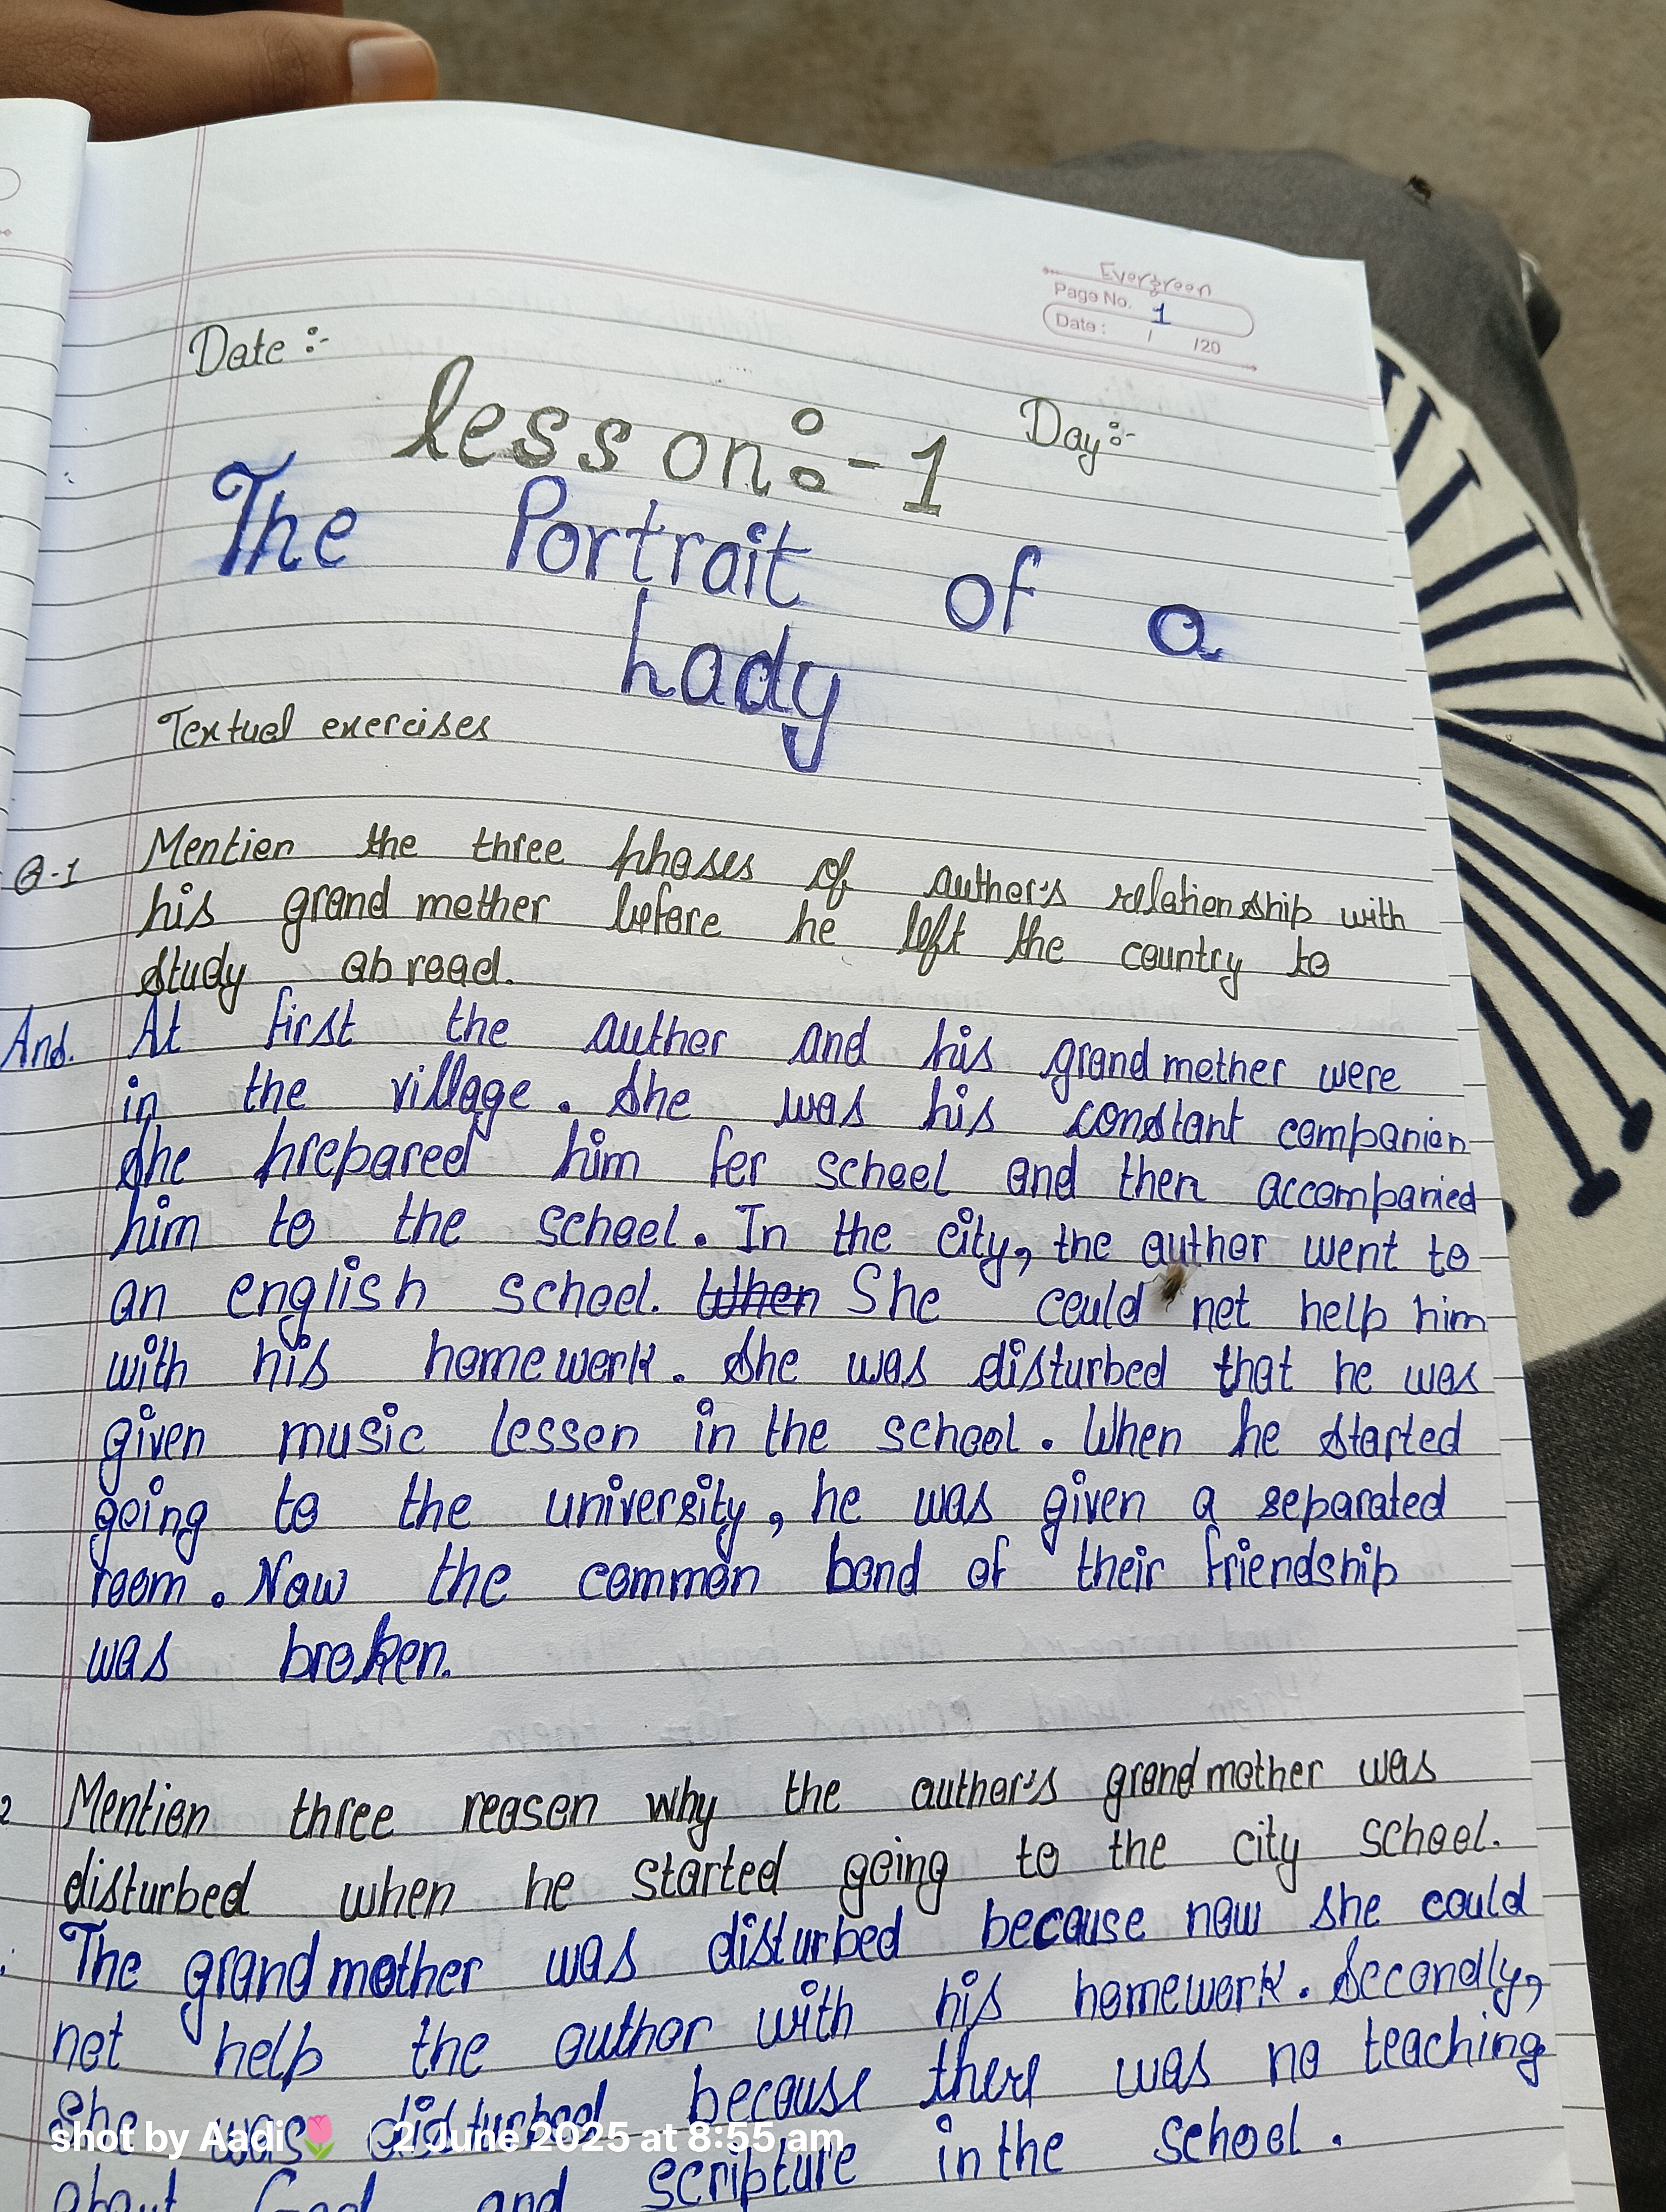 Evergreen
Page No. 1
Date: / /20
Date :-
Day:-
lesson:-1
The Portrait of a
Lady
Textual exercises
Q-1 Mention the three phases of author's relationship with
his grand mother before he left the country to
study abroad.
And. At first the author and his grand mother were
in the village. She was his constant companion
She prepared him for school and then accompanied
him to the school. In the city, the author went to
an english school. When She could not help him
with his home work. She was disturbed that he was
given music lesson in the school. When he started
going to the university, he was given a separated
room. Now the common bond of their friendship
was broken.
2 Mention three reason why the author's grand mother was
disturbed when he started going to the city school.
The grand mother was disturbed because now she could
not help the author with his homework. Secondly,
She was disturbed because there was no teaching
about God and scripture in the school.
shot by Aadi🌷 | 2 June 2025 at 8:55 am